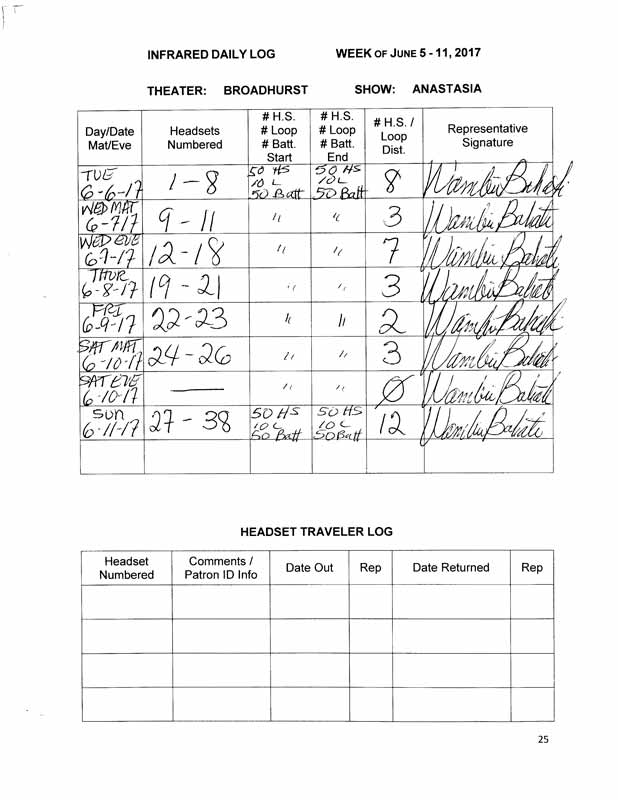 INFRARED DAILY LOG WEEK OF JUNE 5 - 11, 2017
THEATER: BROADHURST SHOW: ANASTASIA
Day/Date Mat/Eve Headsets Numbered # H.S. # Loop # Batt. Start # H.S. # Loop # Batt. End # H.S. / Loop Dist. Representative Signature
TUE 6-6-17 1-8 50 HS 10 L 50 Batt 50 HS 10 L 50 Batt 8 Wambui Bahati
WED MAT 6-7-17 9-11 " " 3 Wambui Bahati
WED EVE 6-7-17 12-18 " " 7 Wambui Bahati
THUR 6-8-17 19-21 " " 3 Wambui Bahati
FRI 6-9-17 22-23 " " 2 Wambui Bahati
SAT MAT 6-10-17 24-26 " " 3 Wambui Bahati
SAT EVE 6-10-17 — " " Ø Wambui Bahati
SUN 6-11-17 27-38 50 HS 10 L 50 Batt 50 HS 10 L 50 Batt 12 Wambui Bahati
HEADSET TRAVELER LOG
Headset Numbered Comments / Patron ID Info Date Out Rep Date Returned Rep
25